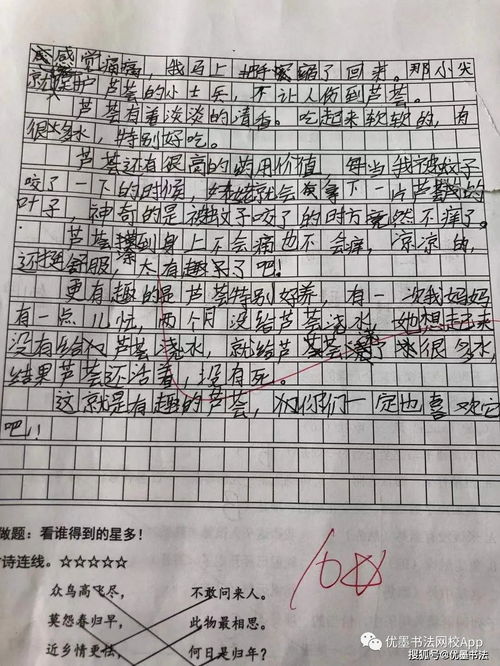 感觉痛痛，我马上把手缩了回来。那小尖
就是保护芦荟的小士兵，不让人伤到芦荟。
芦荟有着淡淡的清香。吃起来软软的，有
很多水，特别好吃。
芦荟还有很高的药用价值，每当我被蚊子
咬了一下的时候，姥姥就会拿下一片芦荟的
叶子，神奇的是被蚊子咬了的地方竟然不痒了。
芦荟擦到身上不会痛也不会痒，凉凉的，
还挺舒服，太有趣了吧！
更有趣的是芦荟特别好养，有一次我妈妈
有一点儿忙，两个月没给芦荟浇水，她想起来
没有给芦荟浇水，就给芦荟浇了很多水
结果芦荟还活着，没有死。
这就是有趣的芦荟，你们一定也喜欢它
吧！
做题：看谁得到的星多！
诗连线。☆☆☆☆☆
众鸟高飞尽， 不敢问来人。
莫怨春归早， 此物最相思。
近乡情更怯， 何日是归年？
优墨书法网校App
搜狐号@优墨书法